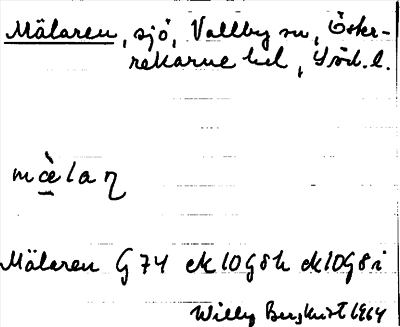 Mälaren, sjö, Vallby sn, Öster-
rekarne hd, Söd. l.
mælaɳ
Mälaren G 74 ek 10G8h ek 10G8i
Willy Bergkvist 1964